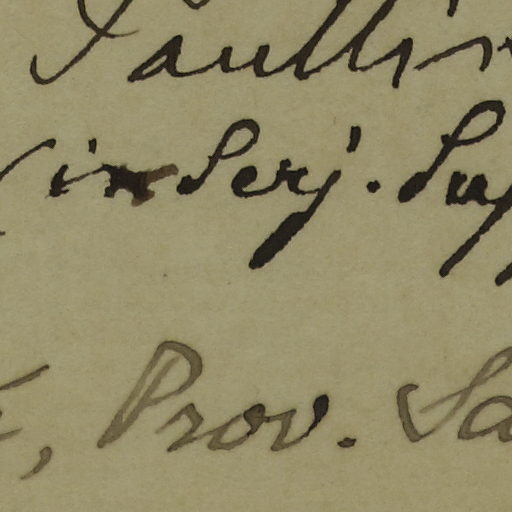 Paullin
in Serj. Sup
, Prov. Sa